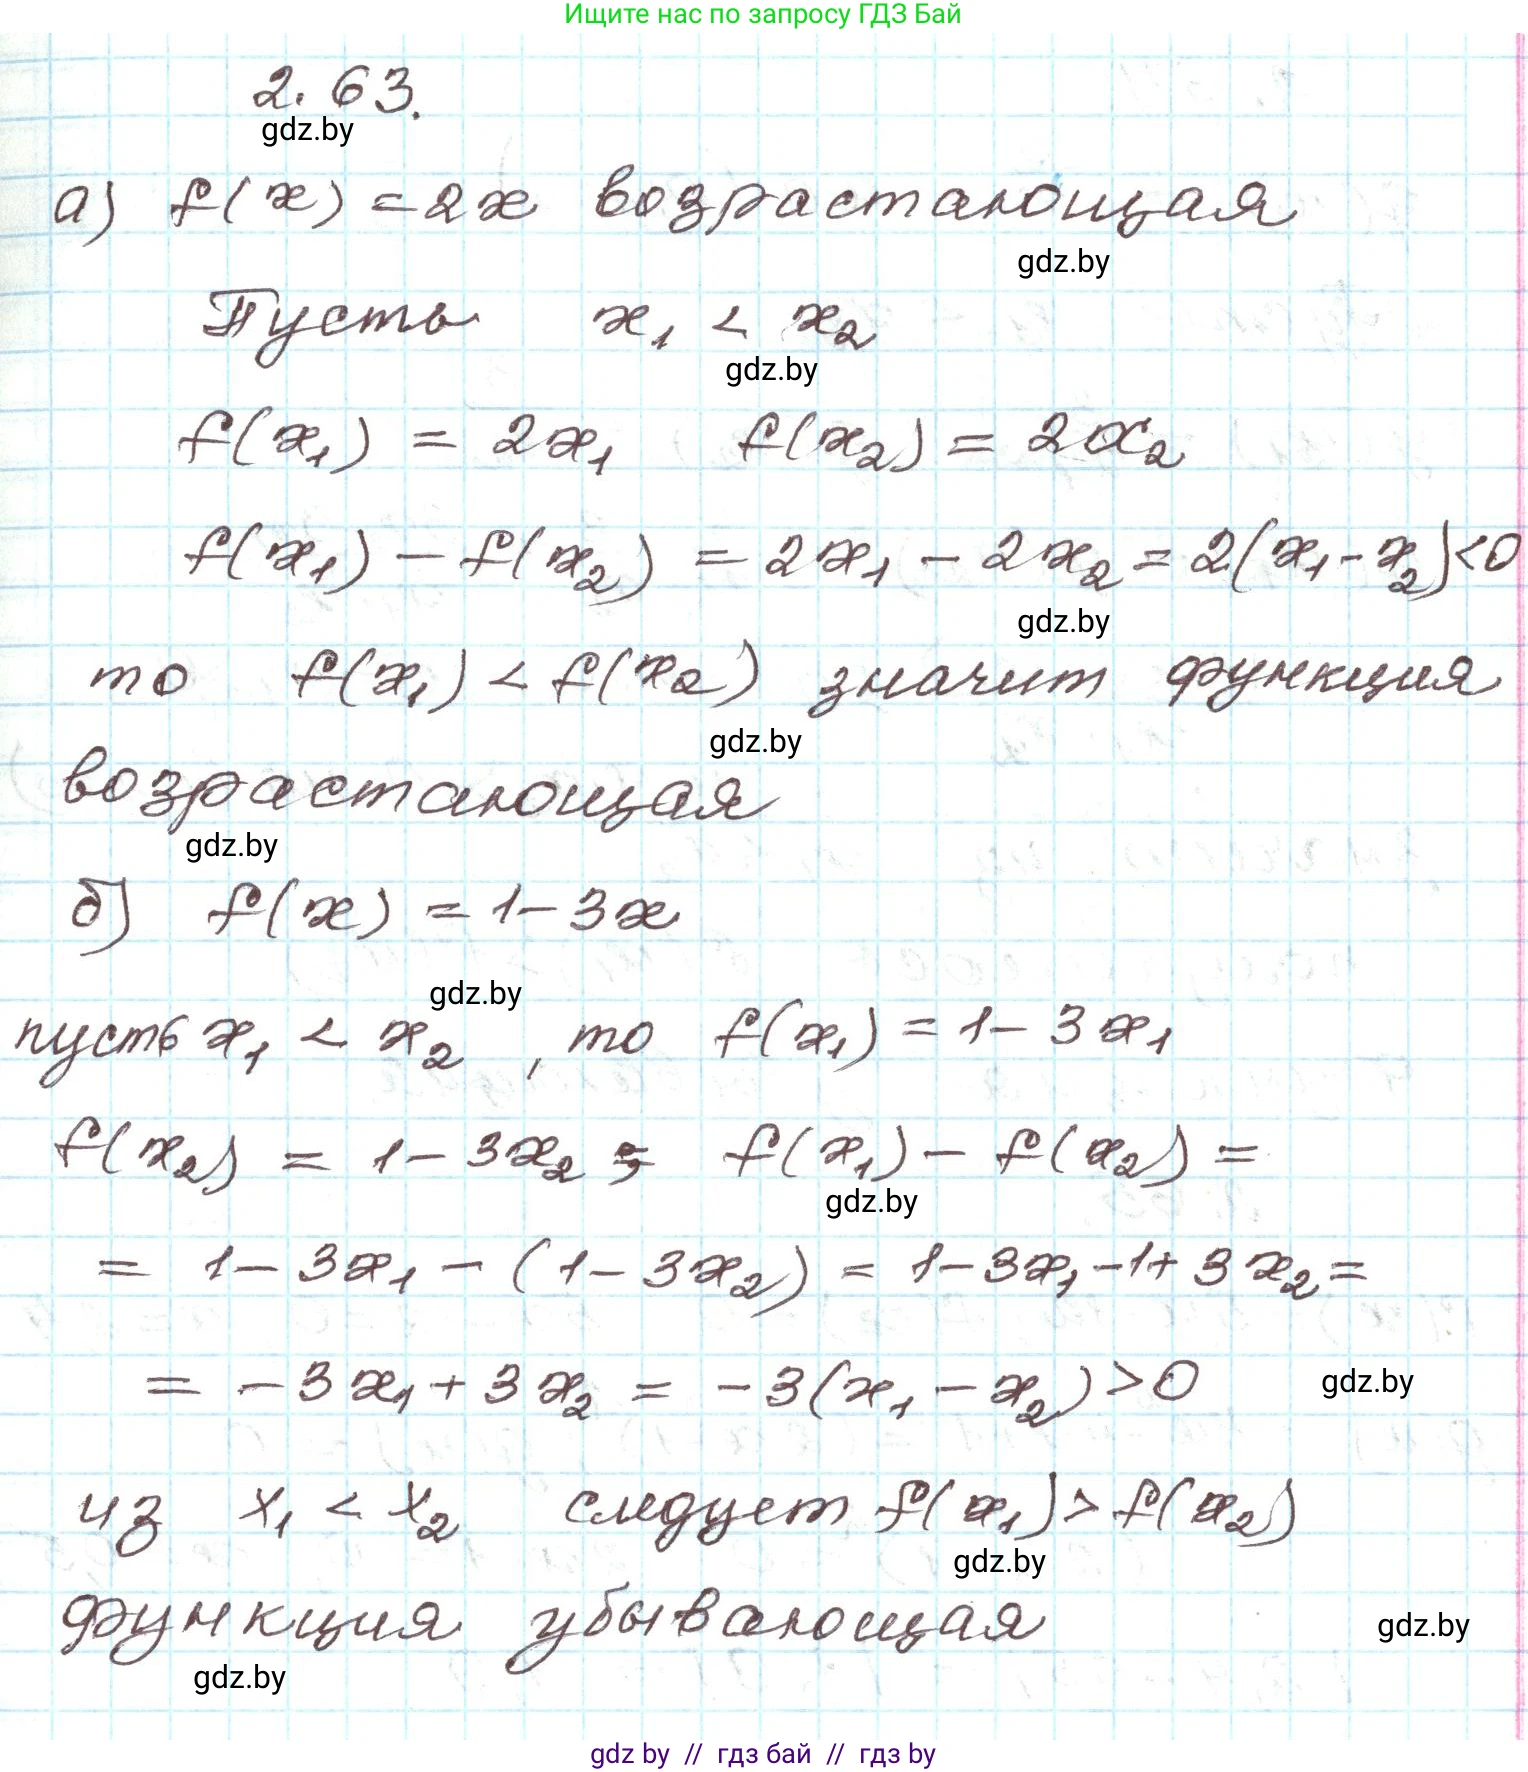 Ищите нас по запросу ГДЗ Бай
2.63.
gdz.by
а) f(x) = 2x возрастающая
gdz.by
Пусть x₁ < x₂
gdz.by
f(x₁) = 2x₁ f(x₂) = 2x₂
f(x₁) - f(x₂) = 2x₁ - 2x₂ = 2(x₁ - x₂) < 0
gdz.by
то f(x₁) < f(x₂) значит функция
gdz.by
возрастающая
gdz.by
б) f(x) = 1 - 3x
gdz.by
пусть x₁ < x₂, то f(x₁) = 1 - 3x₁
f(x₂) = 1 - 3x₂; f(x₁) - f(x₂) =
gdz.by
= 1 - 3x₁ - (1 - 3x₂) = 1 - 3x₁ - 1 + 3x₂ =
= -3x₁ + 3x₂ = -3(x₁ - x₂) > 0
gdz.by
из x₁ < x₂ следует f(x₁) > f(x₂)
gdz.by
функция убывающая
gdz.by
gdz.by
gdz by // гдз бай // гдз by